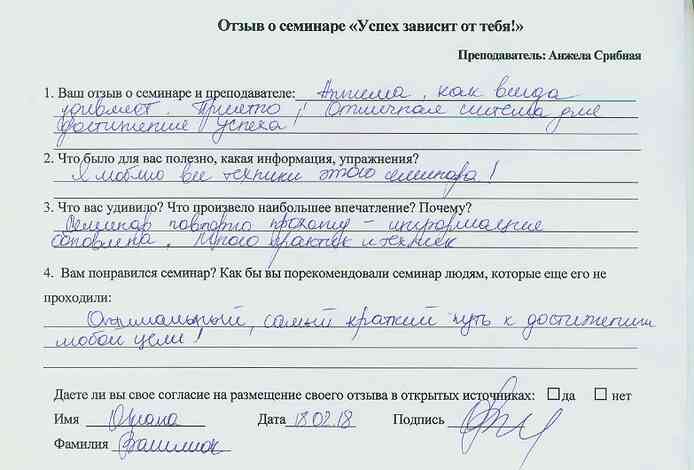 Отзыв о семинаре «Успех зависит от тебя!»
Преподаватель: Анжела Срибная
1. Ваш отзыв о семинаре и преподавателе: Анжела, как всегда
удивляет. Приятно! Отличная система для
достижения успеха!
2. Что было для вас полезно, какая информация, упражнения?
Я люблю все техники этого семинара!
3. Что вас удивило? Что произвело наибольшее впечатление? Почему?
Семинар повторно прохожу – информация
обновлена. Много практик и техник
4. Вам понравился семинар? Как бы вы порекомендовали семинар людям, которые еще его не
проходили:
Оптимальный, самый краткий путь к достижению
любой цели!
Даете ли вы свое согласие на размещение своего отзыва в открытых источниках: ☐да ☐ нет
Имя Дата 18.02.18 Подпись
Фамилия